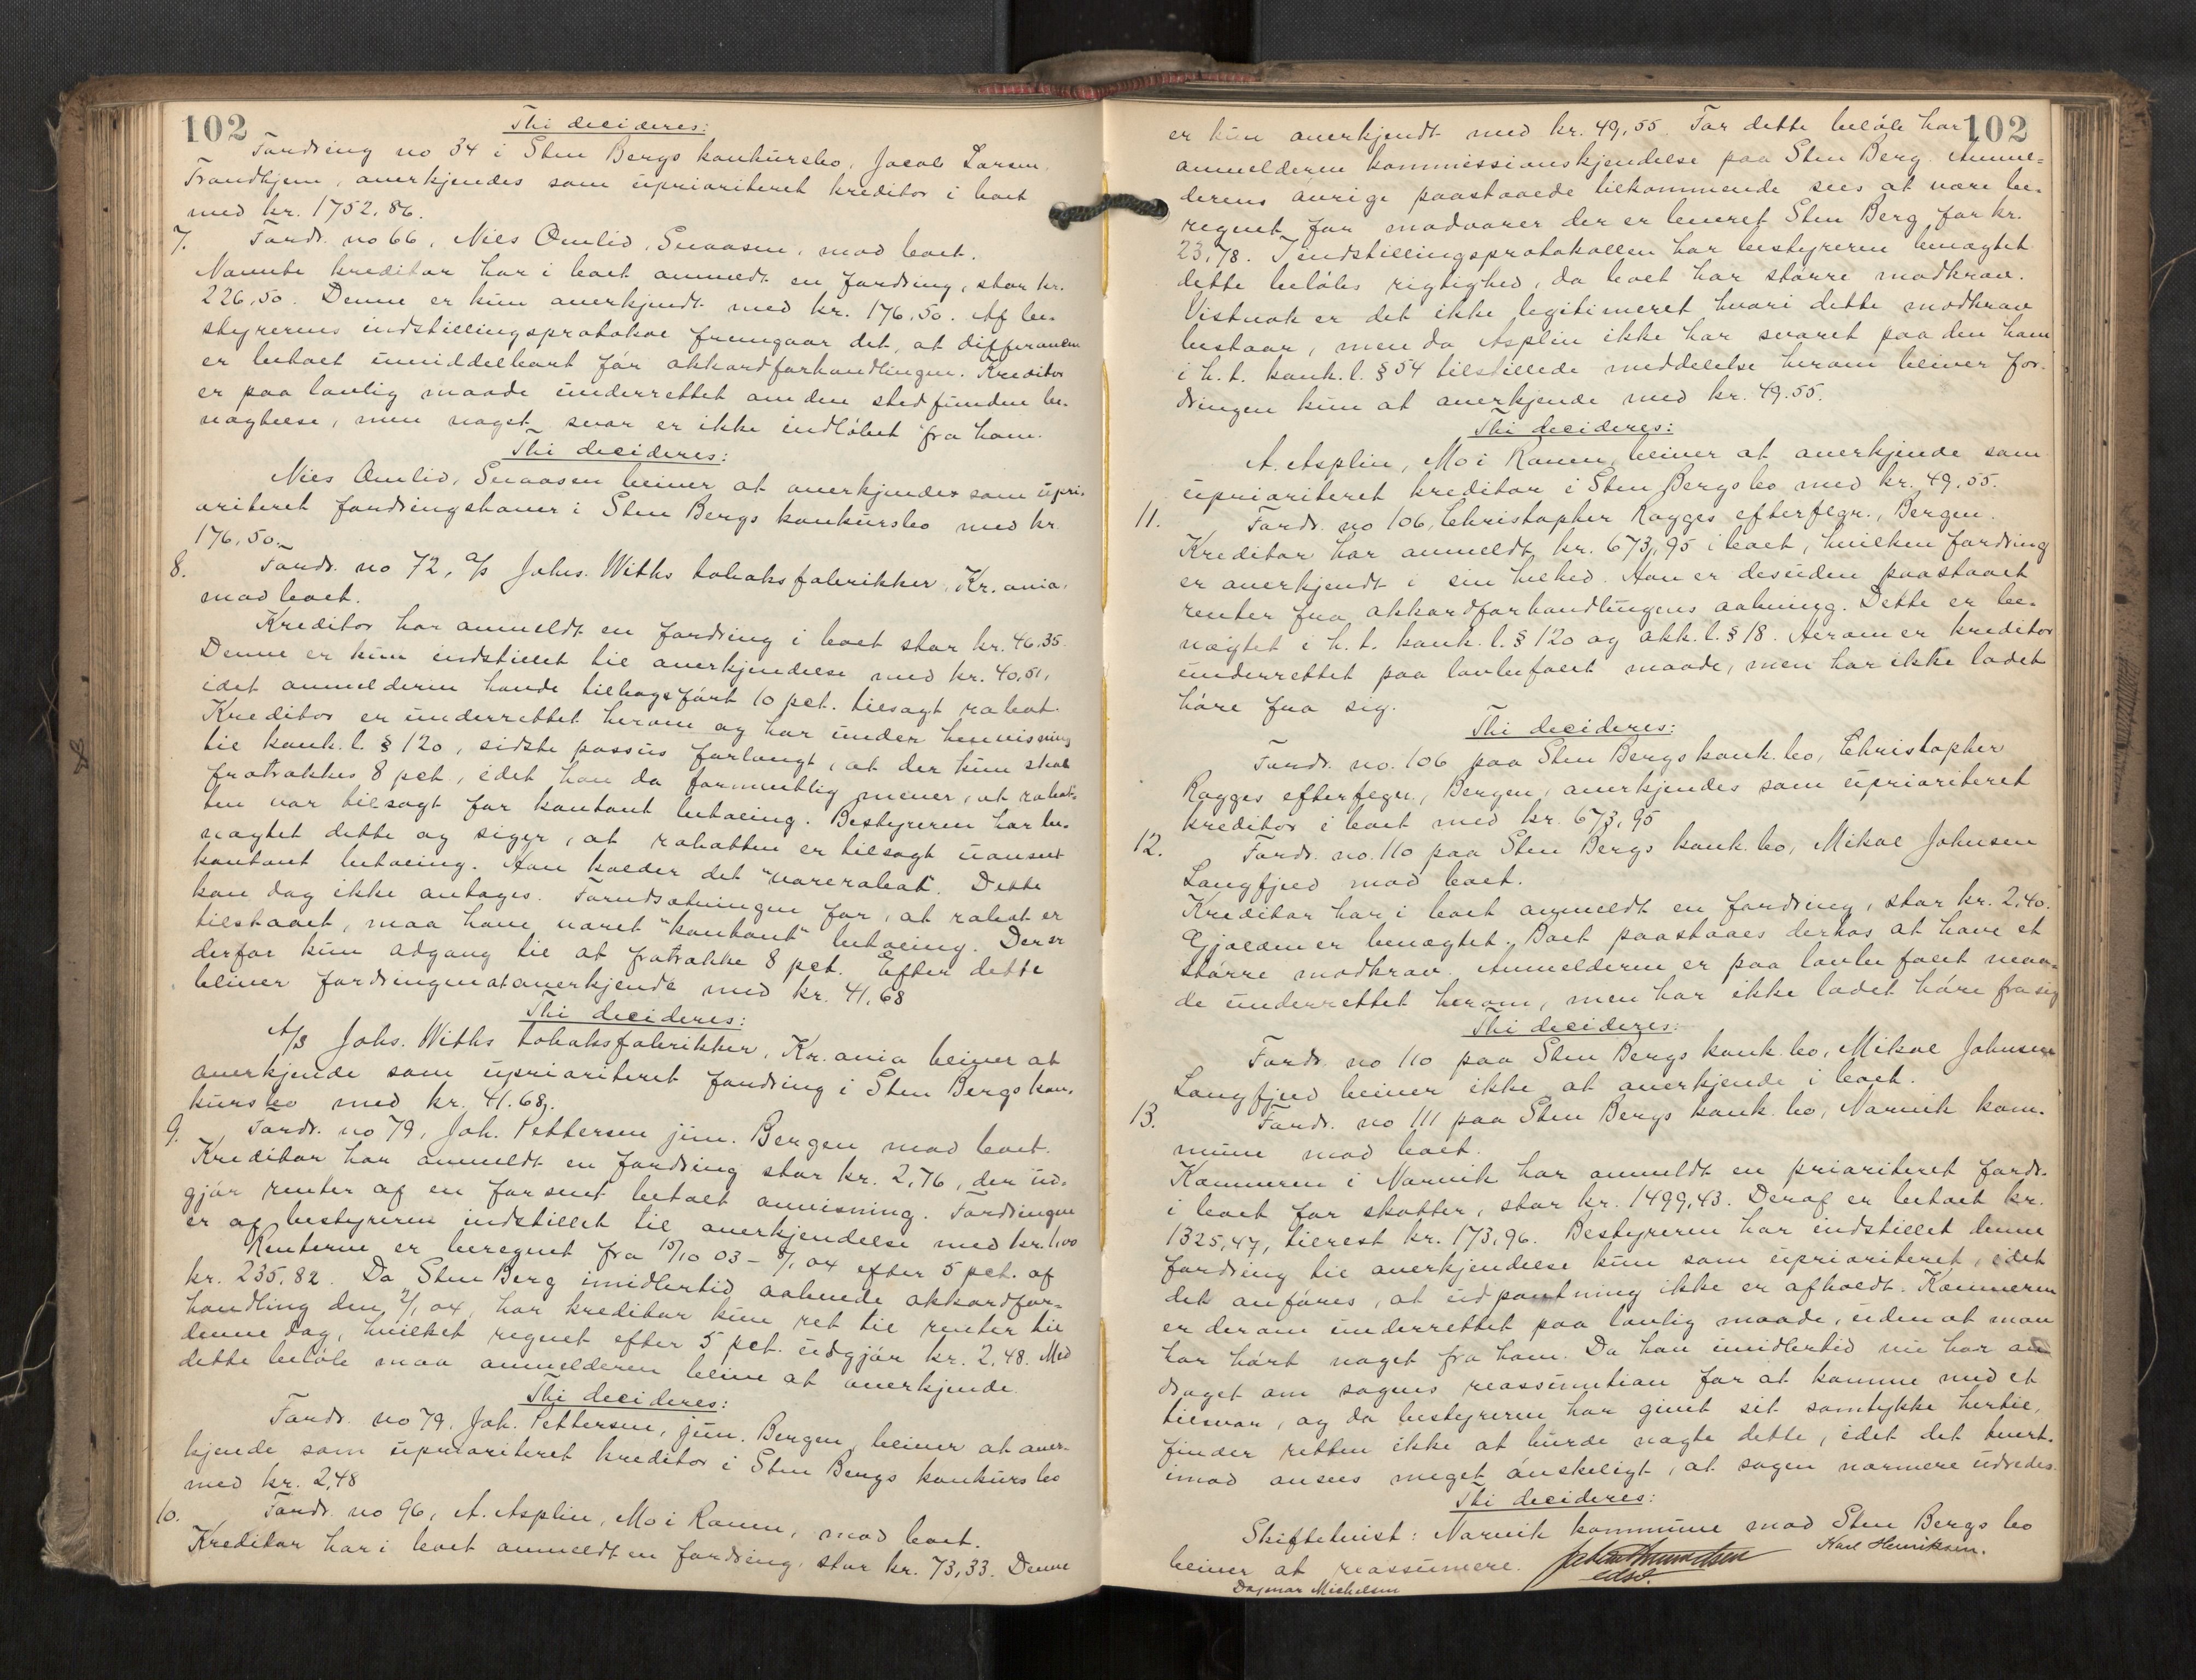 102
Thi decideres:
Fordring no 34 i Sten Bergs konkursbo, Jacob Larsen,
Trondhjem, anerkjendes som uprioriteret kreditor i boet
med kr. 1752.86.
7. Fordr. no 66, Niels Omlid, Snaasen, mod boet.
Nævnte kreditor har i boet anmeldt en fordring, stor kr.
226,50. Denne er kun anerkjendt med kr. 176,50. Af be-
styrerens indstillingsprotokol fremgaar det, at differancen
er betalt umiddelbart før akkordforhandlingen. Kreditor
er paa lovlig maade underrettet om den stedfundne be-
nægtelse, men noget svar er ikke indløbet fra ham.
Thi decideres:
Niels Omlid, Snaasen bliver at anerkjendes som upri-
oriteret fordringshaver i Sten Bergs konkursbo med kr.
176,50.
8. Fordr. no 72, a/s Johs. Withs tobaksfabrikker, Kr.ania,
mod boet.
Kreditor har anmeldt en fordring i boet stor kr. 46,35.
Denne er kun indstillet til anerkjendelse med kr. 40,51,
idet anmelderen havde tilbageført 10 pct. tilsagt rabat.
Kreditor er underrettet herom og har under henvisning
til konk. l. § 120, sidste passus forlangt, at der kun skal
fratrækkes 8 pct., idet han da formentlig mener, at rabat-
ten var tilsagt for kontant betaling. Bestyreren har be-
nægtet dette og siger, at rabatten er tilsagt uanset
kontant betaling. Han kalder det "varerabat". Dette
kan dog ikke antages. Forudsætningen for, at rabat er
tilstaaet, maa have været "kontant" betaling. Der er
derfor kun adgang til at fratrække 8 pct. Efter dette
bliver fordringen at anerkjende med kr. 41,68
Thi decideres:
A/S Johs. Withs tobaksfabrikker, Kr.ania bliver at
anerkjende som uprioriteret fordring i Sten Bergs kon-
kursbo med kr. 41.68.
9. Fordr. no 79, Joh. Pettersen jun. Bergen mod boet.
Kreditor har anmeldt en fordring stor kr. 2,76, der ud-
gjør renter af en for sent betalt anvisning. Fordringen
er af bestyreren indstillet til anerkjendelse med kr. 1,00
Renterne er beregnet fra 15/10 03 – 8/1 04 efter 5 pct. af
kr. 235,82. Da Sten Berg imidlertid aabnede akkordfor-
handling den 2/1 04, har kreditor kun ret til renter til
denne dag, hvilket regnet efter 5 pct. udgjør kr. 2,48. Med
dette beløb maa anmelderen blive at anerkjende.
Thi decideres:
Fordr. no 79, Joh. Pettersen, jun. Bergen, bliver at aner-
kjende som uprioriteret kreditor i Sten Bergs konkursbo
med kr. 2,48
10. Fordr. no 96, A. Asplin, Mo i Ranen, mod boet.
Kreditor har i boet anmeldt en fordring, stor kr. 73,33. Denne
102
er kun anerkjendt med kr. 49,55. For dette beløb har
anmelderen kommissionskjendelse paa Sten Berg. Anmel-
derens øvrige paastaaede tilkommende sees at være be-
regnet for modvarer der er leveret Sten Berg for kr.
23,78. I indstillingsprotokollen har bestyreren benægtet
dette beløbs rigtighed, da boet har større modkrav.
Vistnok er det ikke legitimeret hvori dette modkrav
bestaar, men da Asplin ikke har svaret paa den ham
i h. t. konk. l. § 54 tilstillede meddelelse herom bliver for-
dringen kun at anerkjende med kr. 49.55.
Thi decideres:
A. Asplin, Mo i Ranen, bliver at anerkjende som
uprioriteret kreditor i Sten Bergs bo med kr. 49.55.
11. Fordr. no 106, Christopher Rogges efterfegr., Bergen.
Kreditor har anmeldt kr. 673,95 i boet, hvilken fordring
er anerkjendt i sin helhed. Han er desuden paastaaet
renter fra akkordforhandlingens aabning. Dette er be-
nægtet i h. t. konk. l. § 120 og akk. l. § 18. Herom er kreditor
underrettet paa lovbefalet maade, men har ikke ladet
høre fra sig.
Thi decideres:
Fordr. no. 106 paa Sten Bergs konk. bo, Christopher
Rogges efterfegr., Bergen, anerkjendes som uprioriteret
kreditor i boet med kr. 673,95
12. Fordr. no. 110 paa Sten Bergs konk. bo, Mikal Johnsen
Langfjed mod boet.
Kreditor har i boet anmeldt en fordring, stor kr. 2,40.
Gjælden er benægtet. Boet paastaaes derhos at have et
større modkrav. Anmelderen er paa lovbefalet maa-
de underrettet herom, men har ikke ladet høre fra sig
Thi decideres:
Fordr. no 110 paa Sten Bergs konk. bo, Mikal Johnsen
Langfjed bliver ikke at anerkjende i boet.
13. Fordr. no 111 paa Sten Bergs konk. bo, Narvik kom-
mune mod boet.
Kæmneren i Narvik har anmeldt en prioriteret fordr.
i boet for skatter, stor kr. 1499,43. Deraf er betalt kr.
1325,47, tilrest kr. 173,96. Bestyreren har indstillet denne
fordring til anerkjendelse kun som uprioriteret, idet
det anføres, at udpantning ikke er afholdt. Kæmneren
er derom underrettet paa lovlig maade, uden at man
har hørt noget fra ham. Da han imidlertid nu har an
draget om sagens reassumtion for at komme med et
tilsvar, og da bestyreren har givet sit samtykke hertil,
finder retten ikke at burde nægte dette, idet det tvert-
imod ansees meget ønskeligt, at sagen nærmere udredes.
Thi decideres:
Skiftetvist: Narvik kommune mod Sten Bergs bo
bliver at reassumere.
Karl Henriksen.
edsv.
Dagmar Michelsen